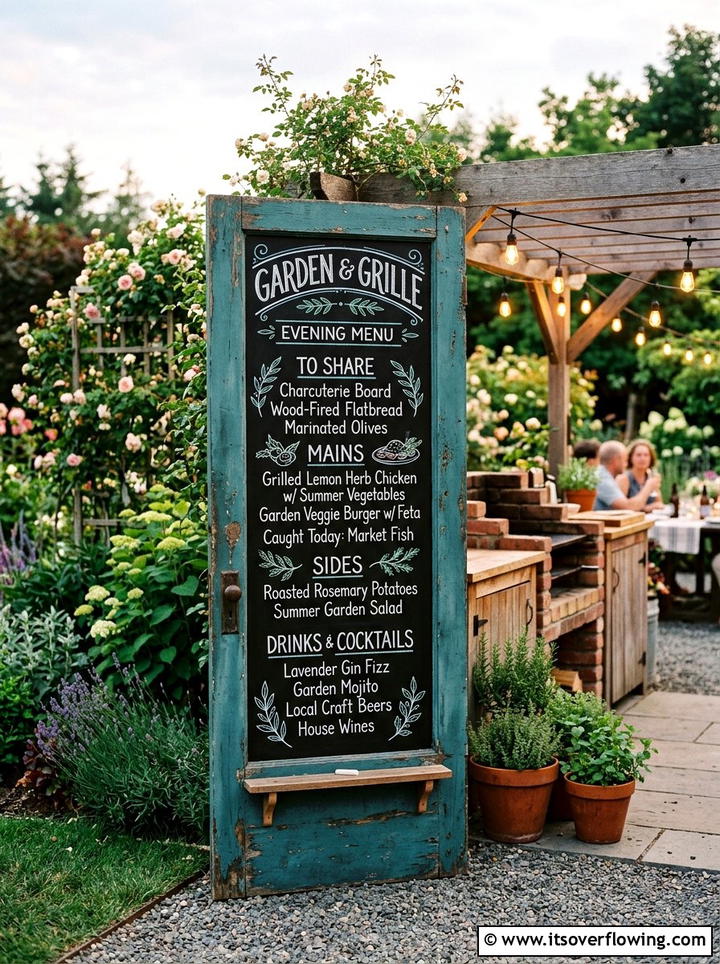 GARDEN & GRILLE
EVENING MENU
TO SHARE
Charcuterie Board
Wood-Fired Flatbread
Marinated Olives
MAINS
Grilled Lemon Herb Chicken
w/ Summer Vegetables
Garden Veggie Burger w/ Feta
Caught Today: Market Fish
SIDES
Roasted Rosemary Potatoes
Summer Garden Salad
DRINKS & COCKTAILS
Lavender Gin Fizz
Garden Mojito
Local Craft Beers
House Wines
© www.itsoverflowing.com